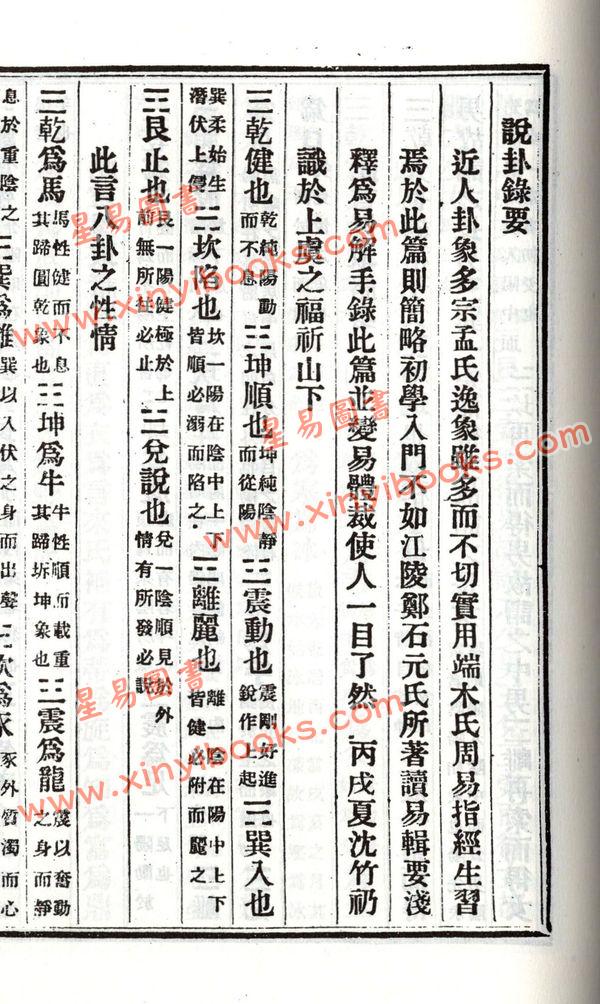 說卦錄要
近人卦象多宗孟氏逸象雖多而不切實用端木氏周易指經生習
焉於此篇則簡略初學入門不如江陵鄭石元氏所著讀易輯要淺
釋爲易解手錄此篇並變易體裁使人一目了然 丙戌夏沈竹礽
識於上虞之福祈山下
☰乾健也乾純陽動而不息 ☷坤順也坤純陰靜而從陽 ☳震動也震剛好進銳作上起 ☴巽入也
巽柔始生潛伏上侵 ☵坎陷也坎一陽在陰中上下皆順必溺而陷之 ☲離麗也離一陰在陽中上下皆健必附而麗之
☶艮止也艮一陽健極於上前無所往必止 ☱兌說也兌一陰順見於外情有所發必說
此言八卦之性情
☰乾爲馬馬性健而不息其蹄圓乾象也 ☷坤爲牛牛性順而載重其蹄坼坤象也 ☳震爲龍震以奮動之身而靜
息於重陰之 ☴巽爲雞巽以入伏之身而出聲 ☵坎爲豕豕外質濁而心
星易圖書
www.xinyibooks.com
星易圖書
www.xinyibooks.com
星易圖書
www.xinyibooks.com